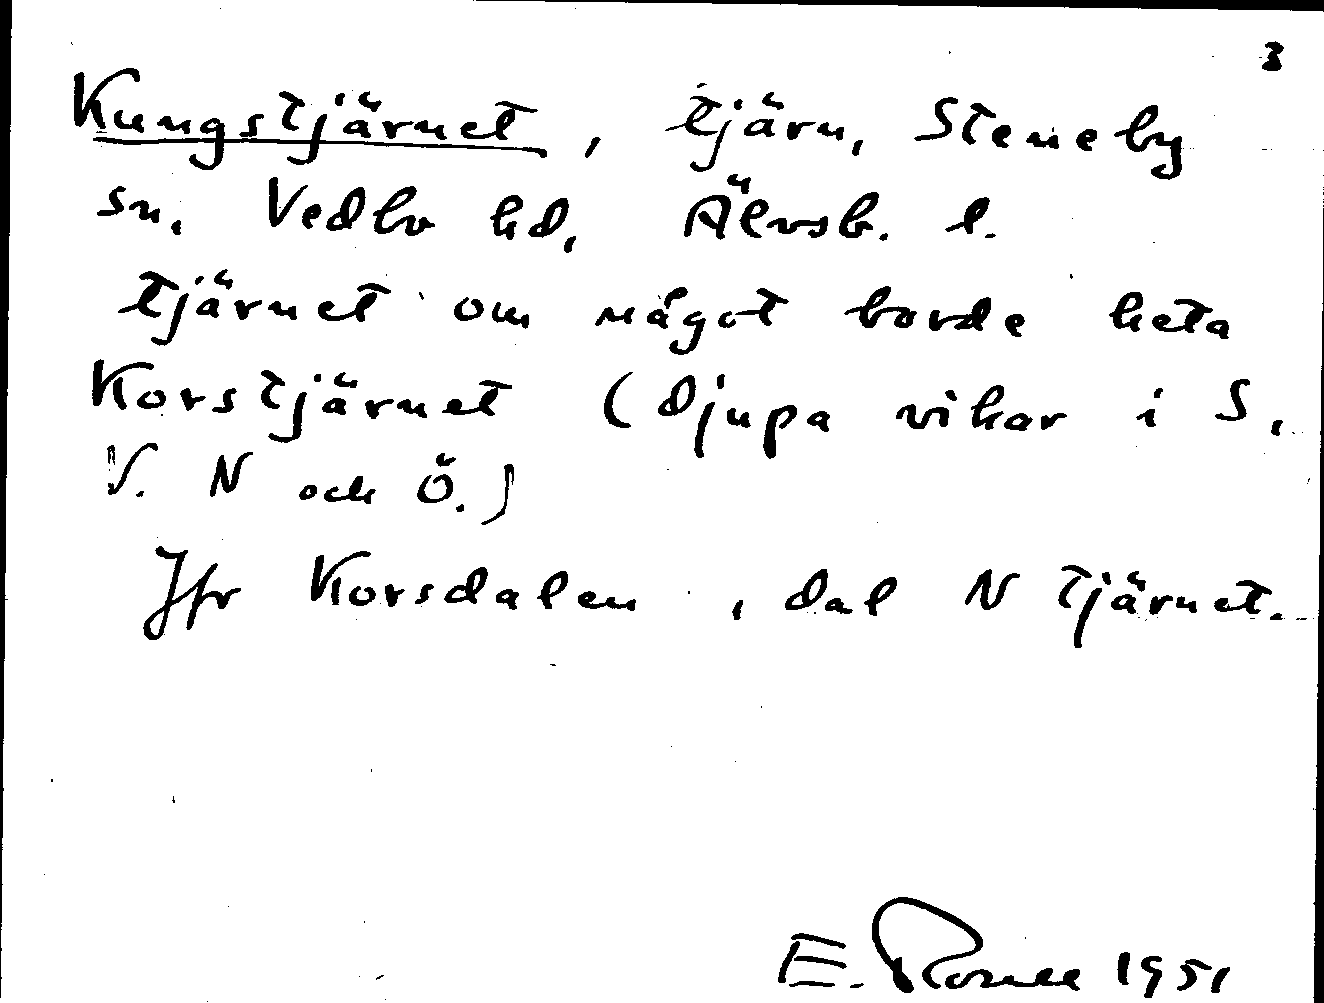 3
Kungstjärnet, tjärn, Steneby
sn. Vedbo hd, Älvsb. l.
tjärnet om något borde heta
Korstjärnet (djupa vikar i S,
V. N och Ö.)
Jfr Korsdalen, dal N tjärnet.
E. 1951